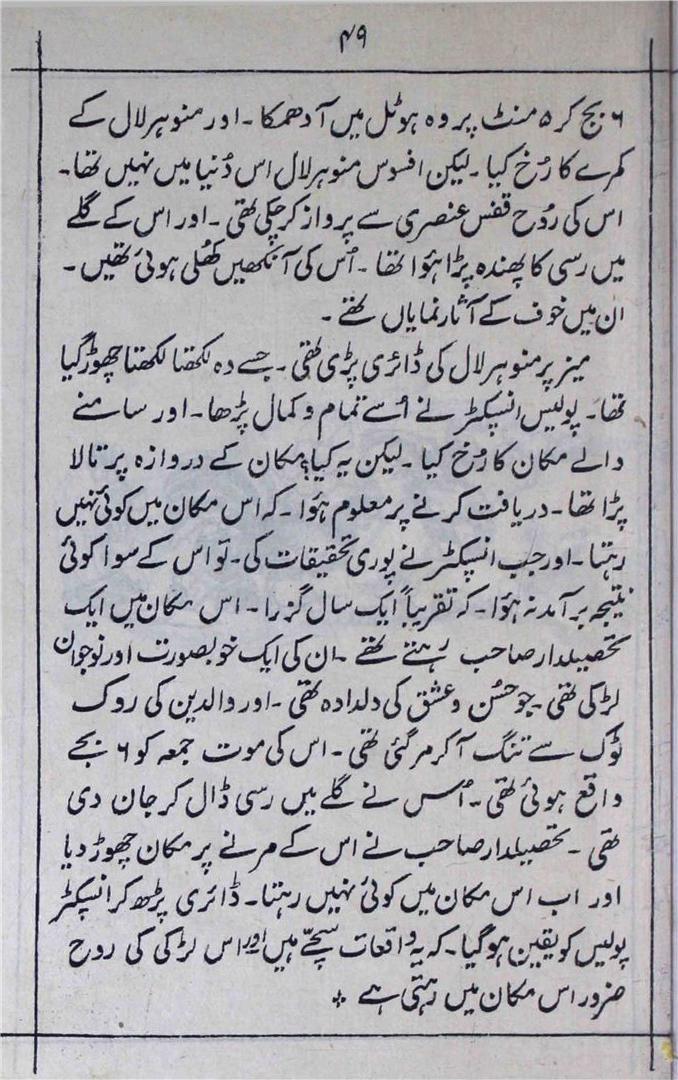 ۴۹
۶ بج کر ۵ منٹ پر وہ ہوٹل میں آ دھمکا۔ اور منوہر لال کے
کمرے کا رُخ کیا۔ لیکن افسوس منوہر لال اس دُنیا میں نہیں تھا۔
اس کی رُوح قفس عنصری سے پرواز کر چکی تھی۔ اور اس کے گلے
میں رسی کا پھندہ پڑا ہؤا تھا۔ اُس کی آنکھیں کھُلی ہوئی تھیں۔
ان میں خوف کے آثار نمایاں تھے۔
میز پر منوہر لال کی ڈائری پڑی تھی۔ جسے وہ لکھتا لکھتا چھوڑ گیا
تھا۔ پولیس انسپکٹر نے اُسے تمام و کمال پڑھا۔ اور سامنے
والے مکان کا رُخ کیا۔ لیکن یہ کیا؟ مکان کے دروازہ پر تالا
پڑا تھا۔ دریافت کرنے پر معلوم ہؤا۔ کہ اس مکان میں کوئی نہیں
رہتا۔ اور جب انسپکٹر نے پوری تحقیقات کی۔ تو اس کے سوا کوئی
نتیجہ برآمد نہ ہؤا۔ کہ تقریباً ایک سال گزرا۔ اس مکان میں ایک
تحصیلدار صاحب رہتے تھے۔ ان کی ایک خوبصورت اور نوجوان
لڑکی تھی۔ جو حُسن و عشق کی دلدادہ تھی۔ اور والدین کی روک
ٹوک سے تنگ آ کر مر گئی تھی۔ اس کی موت جمعہ کو ۶ بجے
واقع ہوئی تھی۔ اُس نے گلے میں رسی ڈال کر جان دی
تھی۔ تحصیلدار صاحب نے اس کے مرنے پر مکان چھوڑ دیا
اور اب اس مکان میں کوئی نہیں رہتا۔ ڈائری پڑھ کر انسپکٹر
پولیس کو یقین ہو گیا۔ کہ یہ واقعات سچے ہیں اور اس لڑکی کی روح
ضرور اس مکان میں رہتی ہے ٭